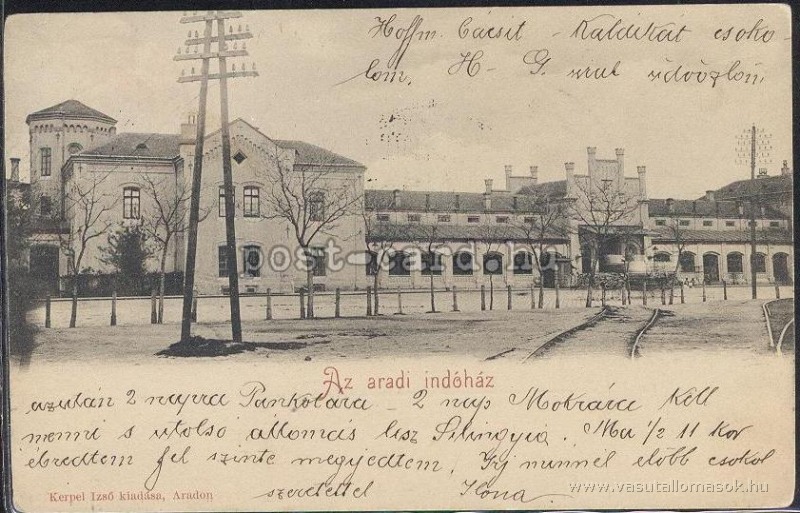 Hoffm. Cácsit - Kaldikát csoko-
lom. H - G. urat üdvözlöm
post-card.hu
Az aradi indóház
azután 2 napra Pankotára - 2 nap Mokrára kell
menni s utolso állomás lisz Silingyia. Ma 1/2 11 kor
ébredtem fel szinte megijedtem. Irj minnél elöbb csokol
szeretettel Ilona.
Kerpel Izsó kiadása, Aradon
© www.vasutallomasok.hu